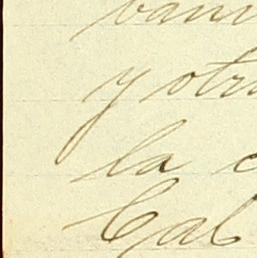 y otr
la c
Cal